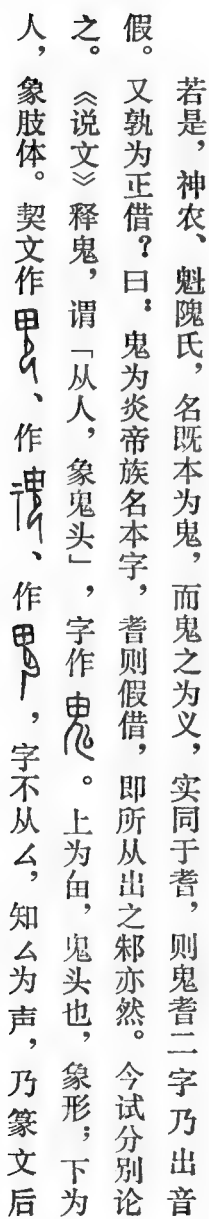 若是，神农、魁隗氏，名既本为鬼，而鬼之为义，实同于耆，则鬼耆二字乃出音
假。又孰为正借？曰：鬼为炎帝族名本字，耆则假借，即所从出之𨙸亦然。今试分别论
之。《说文》释鬼，谓「从人，象鬼头」，字作。上为甶，鬼头也，象形；下为
人，象肢体。契文作、作、作，字不从厶，知厶为声，乃篆文后